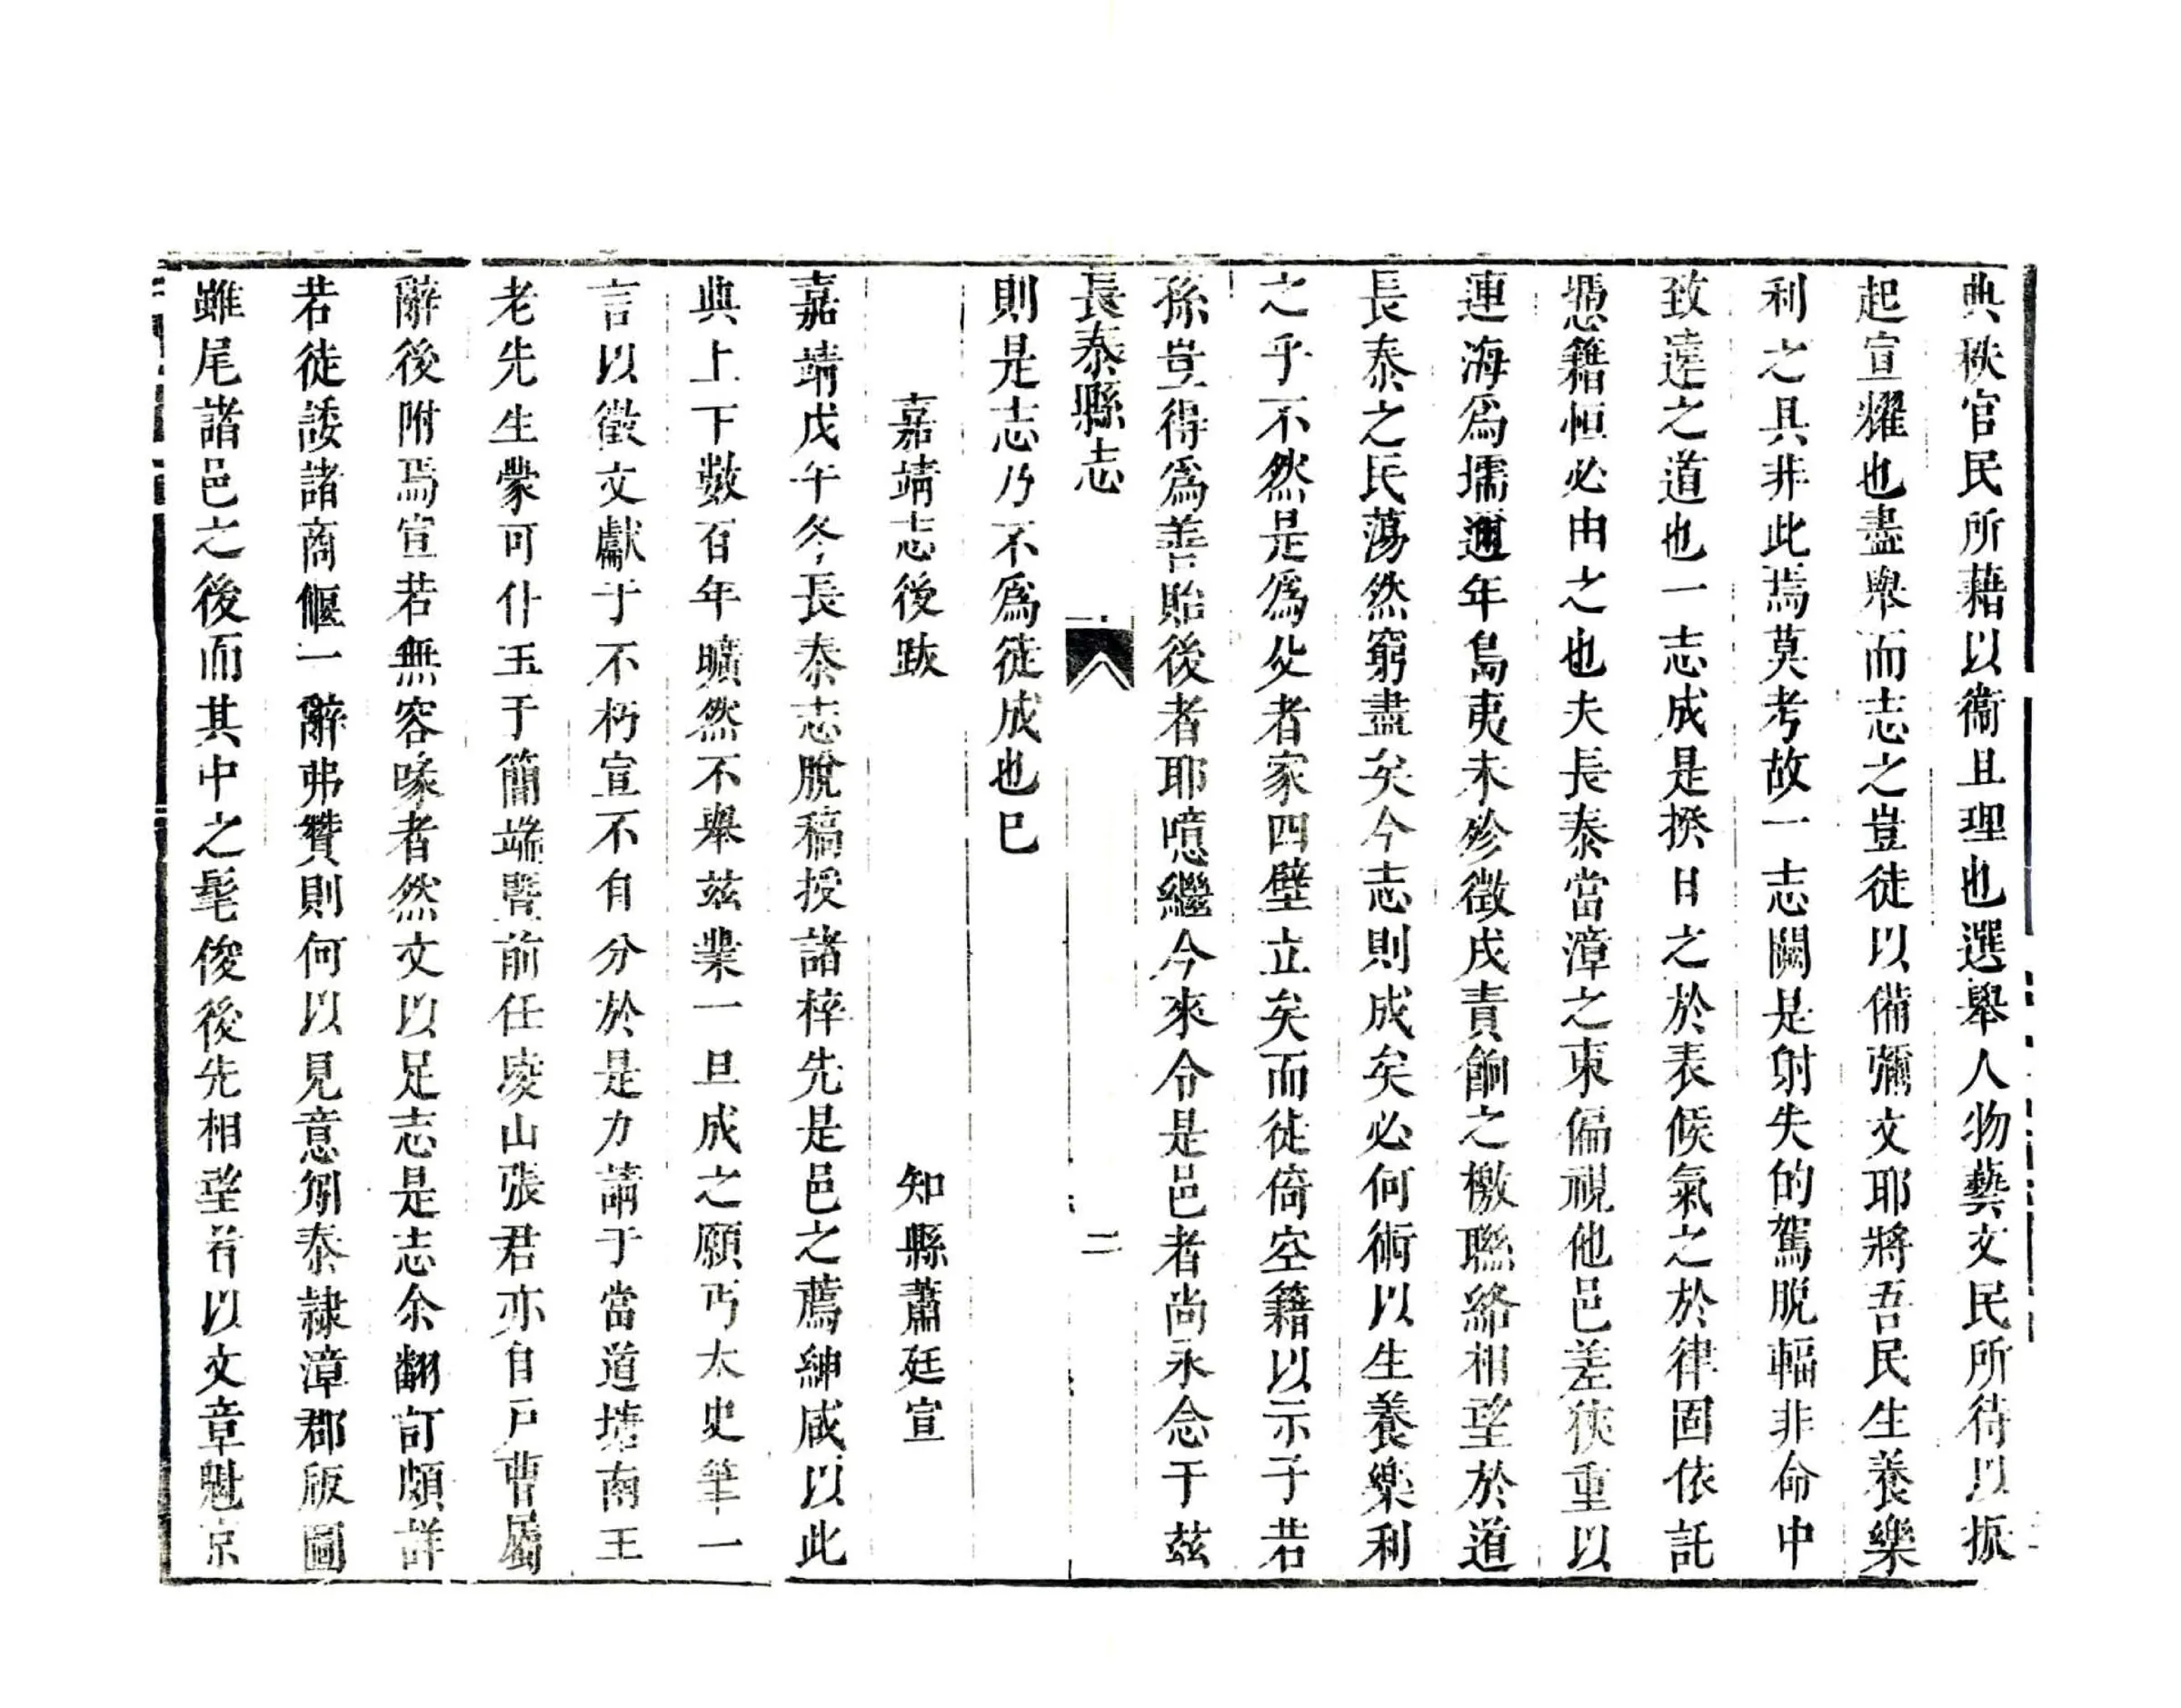 典秩官民所藉以衞且理也選舉人物藝文民所待以振
起宣耀也盡舉而志之豈徒以備彌文耶將吾民生養樂
利之具非此焉莫考故一志闕是射失的駕脱輻非命中
致遠之道也一志成是揆日之於表候氣之於律固依託
憑籍恒必由之也夫長泰當漳之東偏視他邑差狹重以
連海爲壖邇年島夷未殄徵戍責餉之檄聮絡相望於道
長泰之民蕩然窮盡矣今志則成矣必何術以生養樂利
之乎不然是爲父者家四壁立矣而徒倚空籍以示子若
孫豈得爲善貽後者耶噫繼今來令是邑者尚永念于兹
長泰縣志
二
則是志乃不爲徒成也巳
嘉靖志後跋
知縣蕭廷宣
嘉靖戊午冬長泰志脫稿授諸梓先是邑之薦紳咸以此
典上下數百年曠然不舉兹業一旦成之願丐太史筆一
言以徵文獻于不朽宣不自分於是力請于當道塘南王
老先生蒙可什玉于簡端曁前任淩山張君亦自戸曹屬
辭後附焉宣若無容喙者然文以足志是志余翻訂頗詳
若徒諉諸商偃一辭弗贊則何以見意矧泰隷漳郡版圖
雖尾諸邑之後而其中之髦俊後先相望若以文章魁京